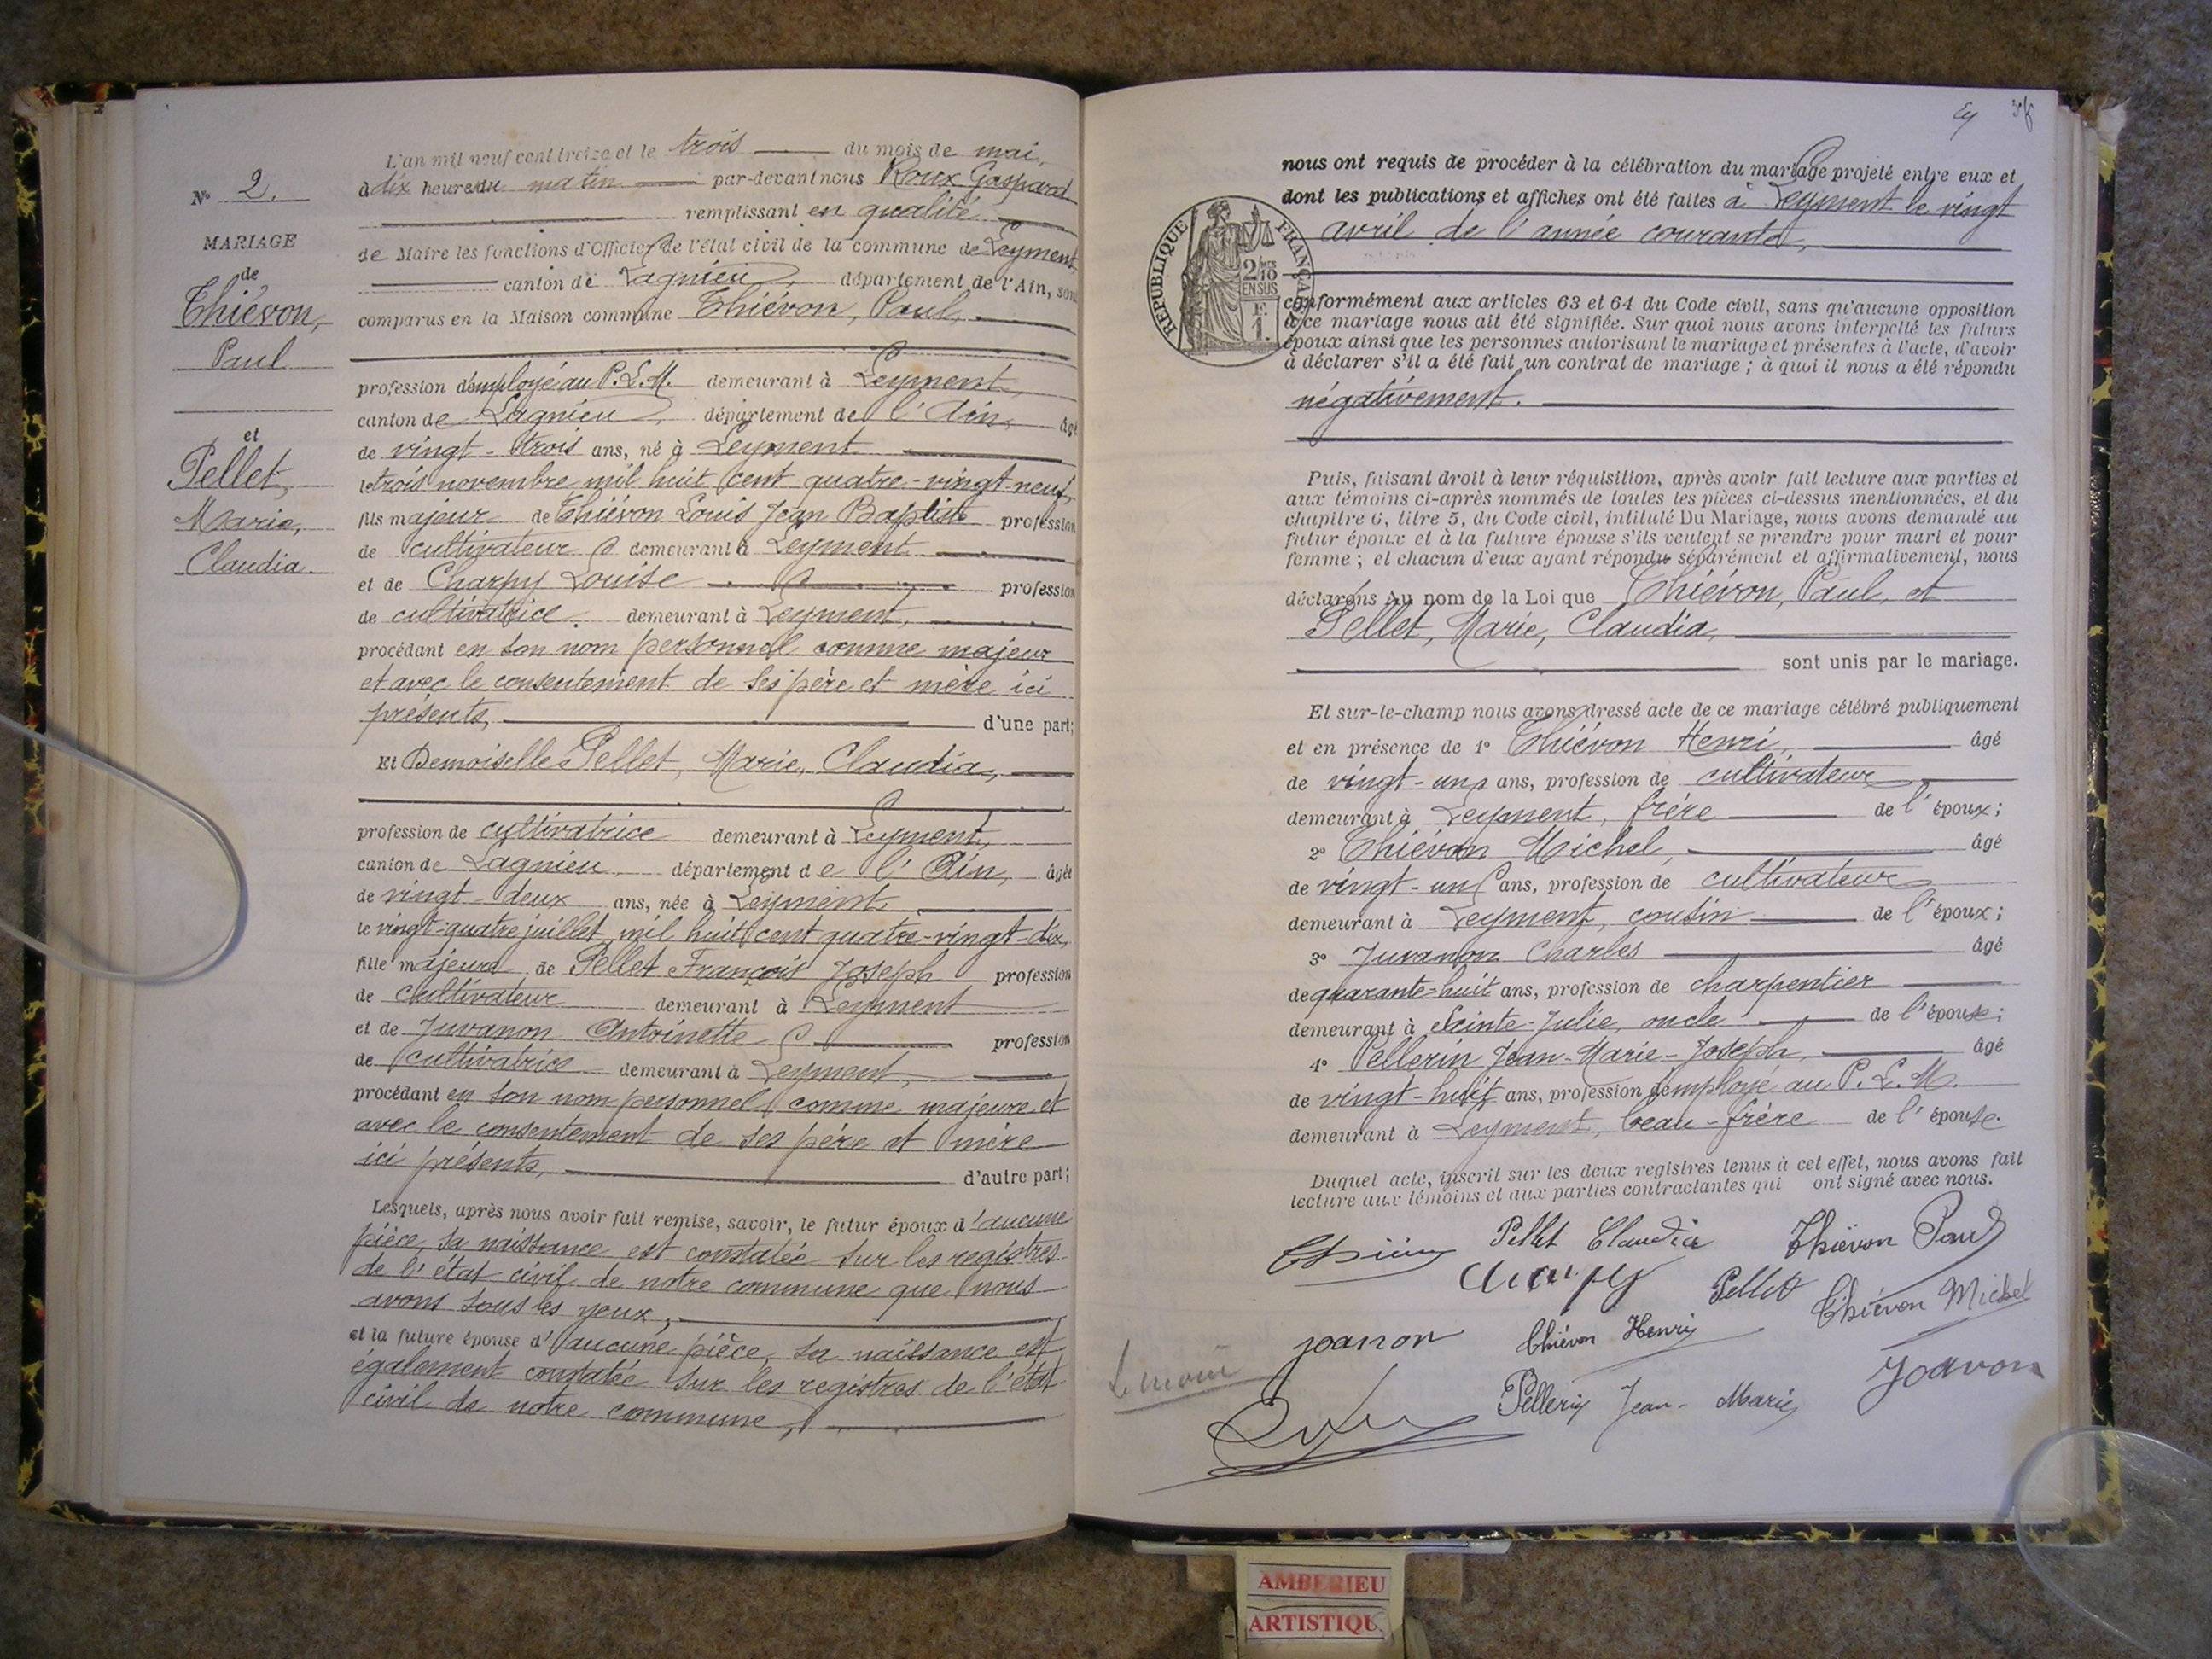 N° 2.
MARIAGE
de
Thiévon,
Paul
et
Pellet,
Marie,
Claudia.
L'an mil neuf cent treize et le trois du mois de mai,
à dix heures du matin par-devant nous Roux Gaspard
remplissant en qualité
de Maire les fonctions d'Officier de l'état civil de la commune de Leyment
canton de Lagnieu, département de l'Ain, sont
comparus en la Maison commune Thiévon, Paul,
profession d'employé au P.L.M. demeurant à Leyment,
canton de Lagnieu, département de l'Ain, âgé
de vingt-trois ans, né à Leyment
le trois novembre mil huit cent quatre-vingt-neuf,
fils majeur de Thiévon Louis Jean Baptiste profession
de cultivateur demeurant à Leyment
et de Charpy Louise profession
de cultivatrice demeurant à Leyment,
procédant en son nom personnel comme majeur
et avec le consentement de ses père et mère ici
présents, d'une part;
Et Demoiselle Pellet, Marie, Claudia,
profession de cultivatrice demeurant à Leyment,
canton de Lagnieu, département de l'Ain, âgée
de vingt-deux ans, née à Leyment
le vingt-quatre juillet mil huit cent quatre-vingt-dix,
fille majeure de Pellet François Joseph profession
de cultivateur demeurant à Leyment
et de Juvanon Antoinette profession
de cultivatrice demeurant à Leyment,
procédant en son nom personnel comme majeure et
avec le consentement de ses père et mère
ici présents, d'autre part;
Lesquels, après nous avoir fait remise, savoir, le futur époux d'aucune
pièce, sa naissance est constatée sur les registres
de l'état civil de notre commune que nous
avons sous les yeux,
et la future épouse d'aucune pièce, sa naissance est
également constatée sur les registres de l'état
civil de notre commune,
nous ont requis de procéder à la célébration du mariage projeté entre eux et
dont les publications et affiches ont été faites à Leyment le vingt
avril de l'année courante,
RÉPUBLIQUE FRANÇAISE
2/10
EN SUS
F.
1.
conformément aux articles 63 et 64 du Code civil, sans qu'aucune opposition
à ce mariage nous ait été signifiée. Sur quoi nous avons interpellé les futurs
époux ainsi que les personnes autorisant le mariage et présentes à l'acte, d'avoir
à déclarer s'il a été fait un contrat de mariage; à quoi il nous a été répondu
négativement.
Puis, faisant droit à leur réquisition, après avoir fait lecture aux parties et
aux témoins ci-après nommés de toutes les pièces ci-dessus mentionnées, et du
chapitre 6, titre 5, du Code civil, intitulé Du Mariage, nous avons demandé au
futur époux et à la future épouse s'ils veulent se prendre pour mari et pour
femme; et chacun d'eux ayant répondu séparément et affirmativement, nous
déclarons Au nom de la Loi que Thiévon, Paul, et
Pellet, Marie, Claudia,
sont unis par le mariage.
Et sur-le-champ nous avons dressé acte de ce mariage célébré publiquement
et en présence de 1° Thiévon Henri, âgé
de vingt-un ans, profession de cultivateur
demeurant à Leyment, frère de l'époux;
2° Thiévon Michel, âgé
de vingt-un ans, profession de cultivateur
demeurant à Leyment, cousin de l'époux;
3° Juvanon Charles âgé
de quarante-huit ans, profession de charpentier
demeurant à Sainte-Julie, oncle de l'épouse;
4° Pellerin Jean-Marie-Joseph, âgé
de vingt-huit ans, profession d'employé au P.L.M.
demeurant à Leyment, beau-frère de l'épouse.
Duquel acte, inscrit sur les deux registres tenus à cet effet, nous avons fait
lecture aux témoins et aux parties contractantes qui ont signé avec nous.
Pellet Claudia Thiévon Paul
Charpy Pellet Thiévon Michel
Thiévon Henri
Le maire
Pellerin Jean-Marie
AMBERIEU
ARTISTIQU